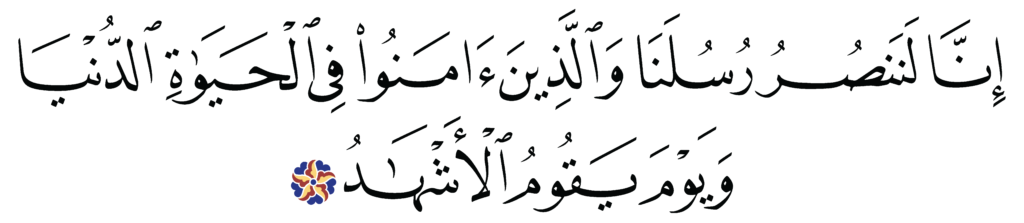 إِنَّا لَنَنصُرُ رُسُلَنَا وَٱلَّذِينَ ءَامَنُوا۟ فِى ٱلْحَيَوٰةِ ٱلدُّنْيَا
وَيَوْمَ يَقُومُ ٱلْأَشْهَـٰدُ